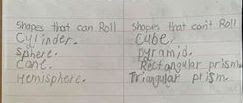 Shapes that can Roll
Cylinder.
Sphere.
Cane.
Hemisphere.
Shapes that can't Roll
Cube.
pyramid.
Rectangular prism.
Triangular prism.